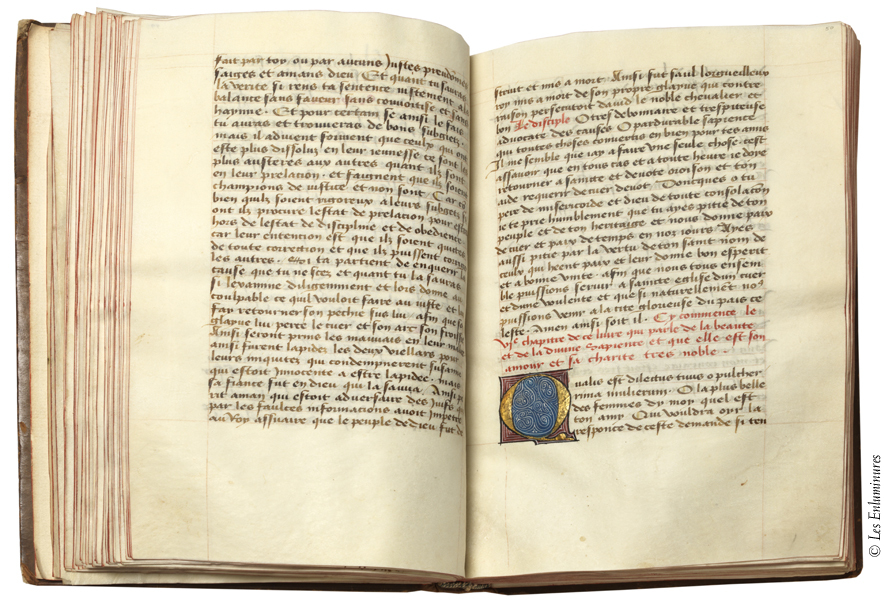 fait par toy ou par aucuns Justes preudōmes
saiges et amans dieu Et quant tu sauras
la verite si rens ta sentence justement a la
balance sans faveur sans couvoitise et sans
hayne Et pour certain se ainsi le fais
tu auras et trouveras de bons subgetz
mais il advient souvent que ceulx qui ont
este plus dissoluz en leur jeunesse ce sont les
plus austeres aux autres quant ilz sont
en leur prelation et faignent que ilz soient
champions de justice et non sont Car
bien quilz soient rigoreux a leurs subgetz si
ont ilz procure lestat de prelation pour estre
hors de lestat de discipline et de obedience
car leur entention est que ilz soient quittes
de toute correction et que ilz puissent corriger
les autres Si ta partient de enquerir la
cause que tu ne scez et quant tu la sauras
si levamine diligemment et lors donne au
coulpable ce quil vouloit faire au juste et luy
fay retourner son pechie sus luy afin que son
glayve luy perce le cuer et son arc son
Ainsi seront prins les mauvais en leur malice
ainsi furent lapidez les deux viellars pour
leurs iniquitez qui condempnerent susanne
qui estoit innocente a estre lapidee mais
sa fiance fut en dieu qui la sauva Ainsi
rit aman qui estoit adversaire des Juifs
par les faulces informations avoit impetre
au roy assuaire que le peuple de dieu fut de
struit et mis a mort Ainsi fut saul lorgueilleux
roy mis a mort de son propre glayve qui contre
raison persecutoit david le noble chevalier et
bon Le disciple O tres debonnaire et trespiteuse
advocate des causes O pardurable sapience
qui toutes choses convertis en bien pour tes amis
Il me semble que jay a faire une seule chose cest
assavoir que en tous cas et a toute heure je doye
retourner a saincte et devote oroison et ton
aide requerir de cuer devot Doncques o tu
pere de misericorde et dieu de toute consolacōn
je te prie humblement que tu ayes pitie de ton
peuple et de ton heritaige et nous donne paix
de cuer et paix de temps en noz jours Ayes
aussi pitie par la vertu de ton saint nom de
ceulx qui heent paix et leur donne bon esperit
et a bonne unite afin que nous tous ensem
ble puissions servir a saincte eglise dun cuer
et dune voulente et que si naturellemēt noꝰ
puissions venir a la cite glorieuse du pais ce
leste Amen ainsi soit il Cy commence le
vjͤ chapitre de ce livre qui parle de la beaute
et de la divine Sapience et que elle est son
amour et sa charite tres noble
Qualis est dilectus tuus o pulcher
rima mulierum O la plus belle
des femmes dy moy quel est
ton amy Qui vouldra oyr la
response de ceste demande si ten
© Les Enluminures